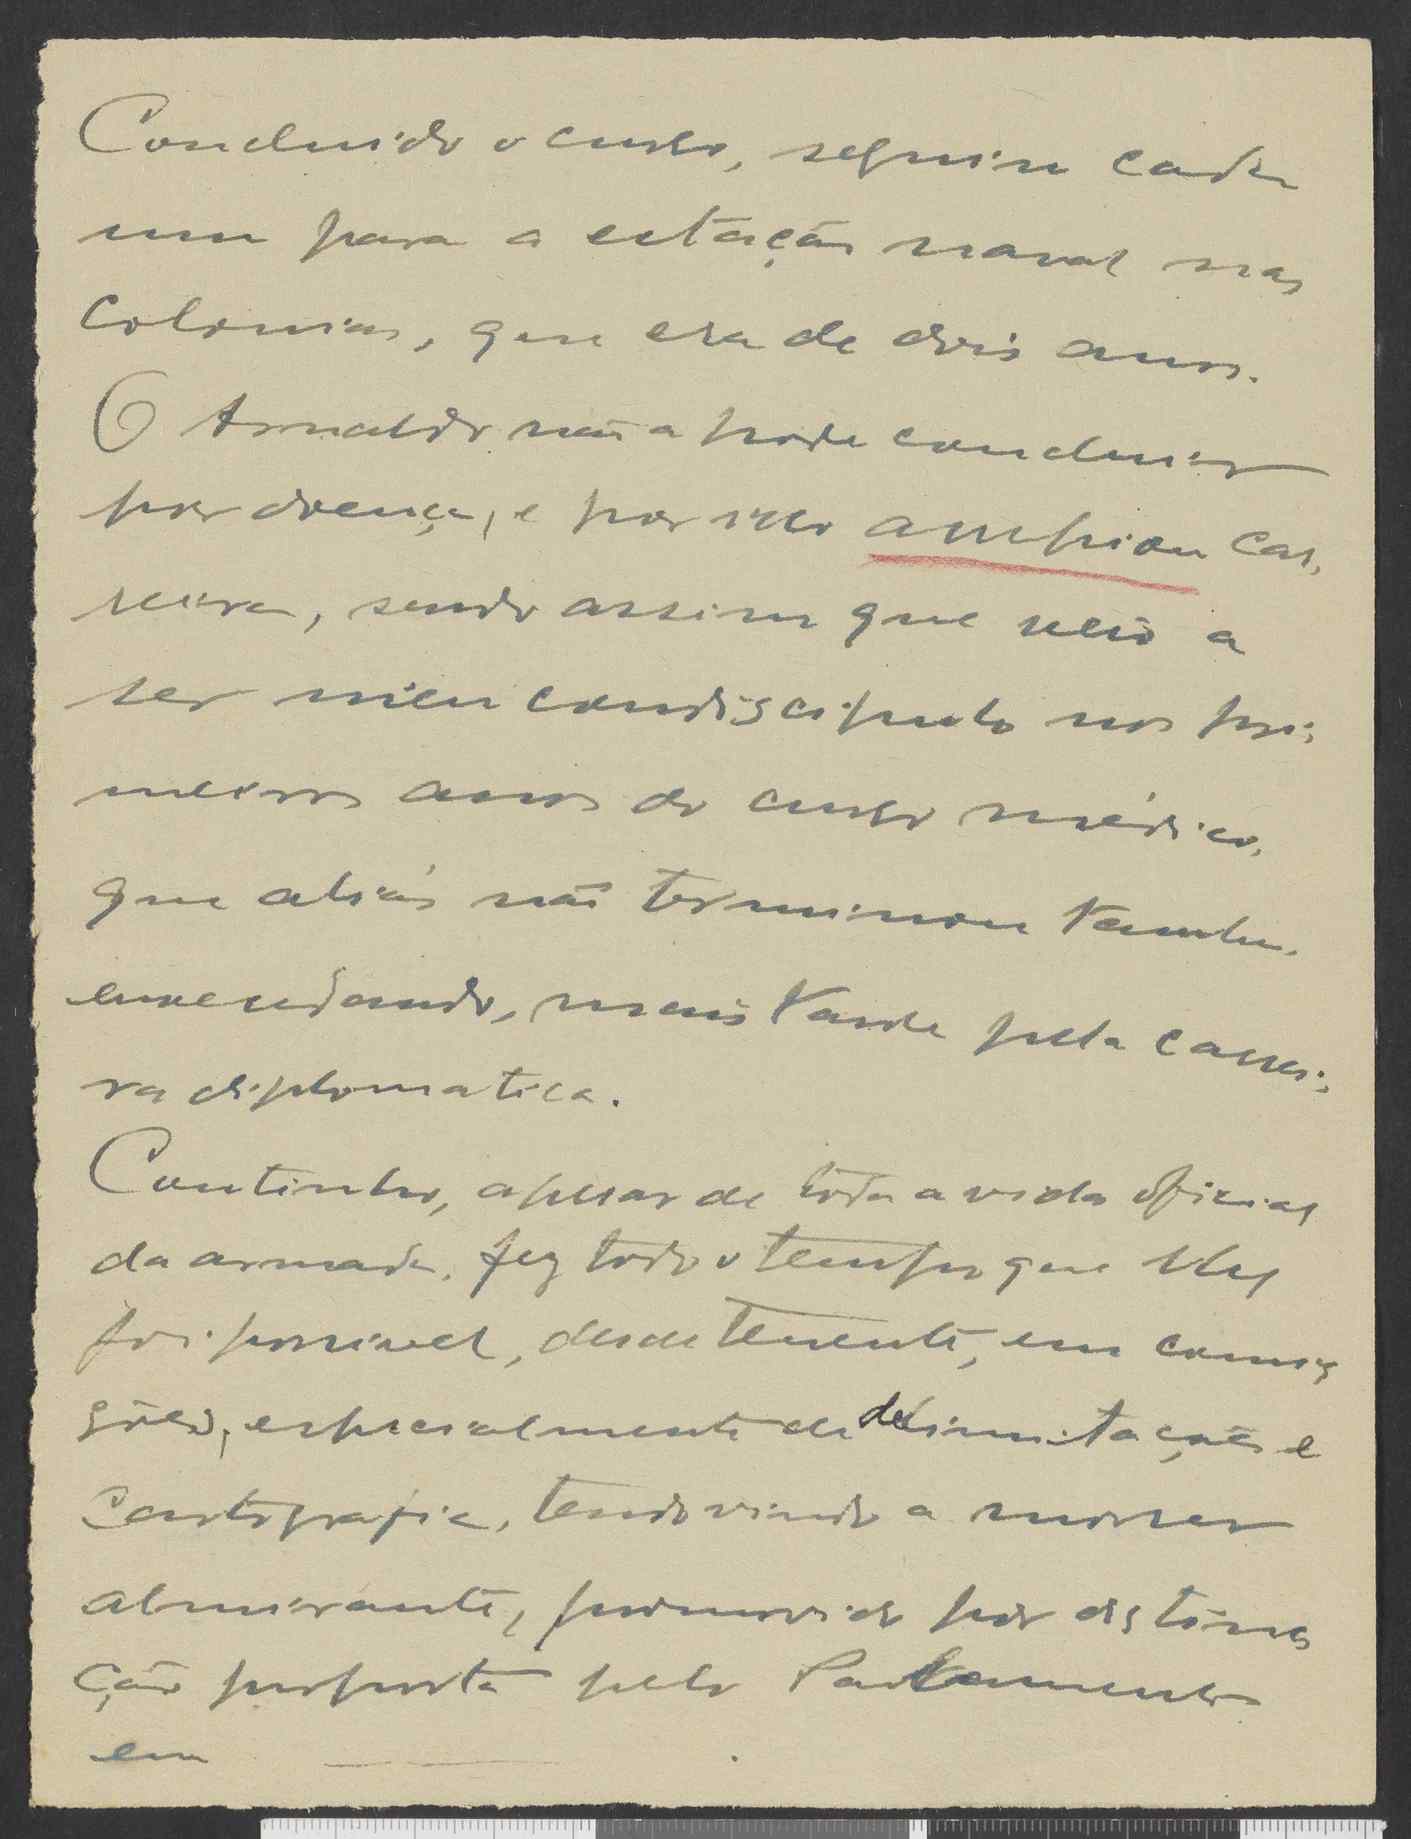 Concluido o curso, seguiu cada
um para a estação naval nas
colonias, que era de dois anos.
O Arnaldo não a pode concluir
por doença, e por isso car-
reira, sendo assim que veio a
ser meu condiscipulo nos pri-
meiros anos do curso médico,
que aliás não terminou tambem,
enveredando, mais tarde pela carrei-
ra diplomatica.
Coutinho, apesar de toda a vida oficial
da armada, fez todo o tempo que lhe
foi possivel, desde tenente, em comis-
sões, especialmente de delimitação e
cartografia, tendo vindo a morrer
almirante, promovido por distin-
ção proposta pelo Parlamento
em